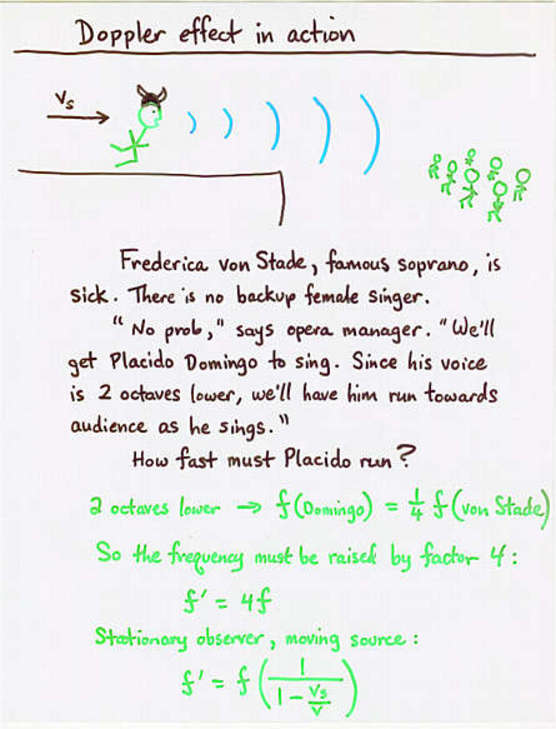 Doppler effect in action
Vs
Frederica von Stade, famous soprano, is
sick. There is no backup female singer.
"No prob," says opera manager. "We'll
get Placido Domingo to sing. Since his voice
is 2 octaves lower, we'll have him run towards
audience as he sings."
How fast must Placido run?
2 octaves lower → f(Domingo) = 1/4 f(von Stade)
So the frequency must be raised by factor 4:
f' = 4f
Stationary observer, moving source:
f' = f (1 / (1 - Vs/V))